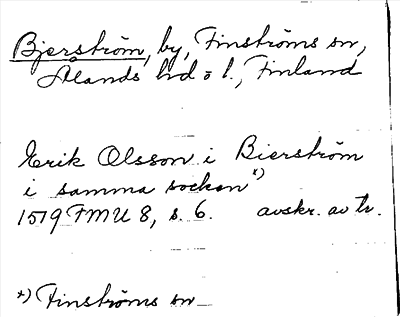 Bjerström, by, Finströms sn,
Ålands hd o l., Finland
Erik Olsson i Bierström
i samma socken x)
1519 FMU 8, s. 6. avskr. av tr.
x) Finströms sn